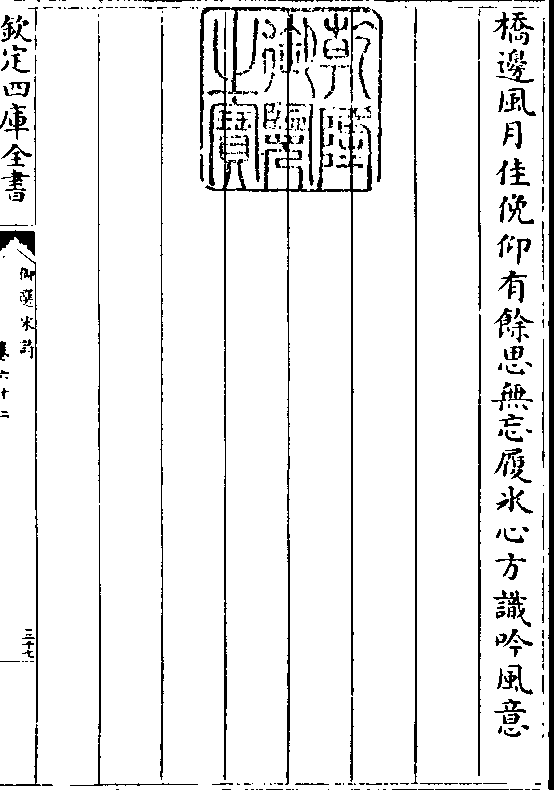 橋邊風月佳俛仰有餘思無忘履氷心方識吟風意
乾隆御覽之寶
欽定四庫全書
御選宋詩
卷六十二
三十七